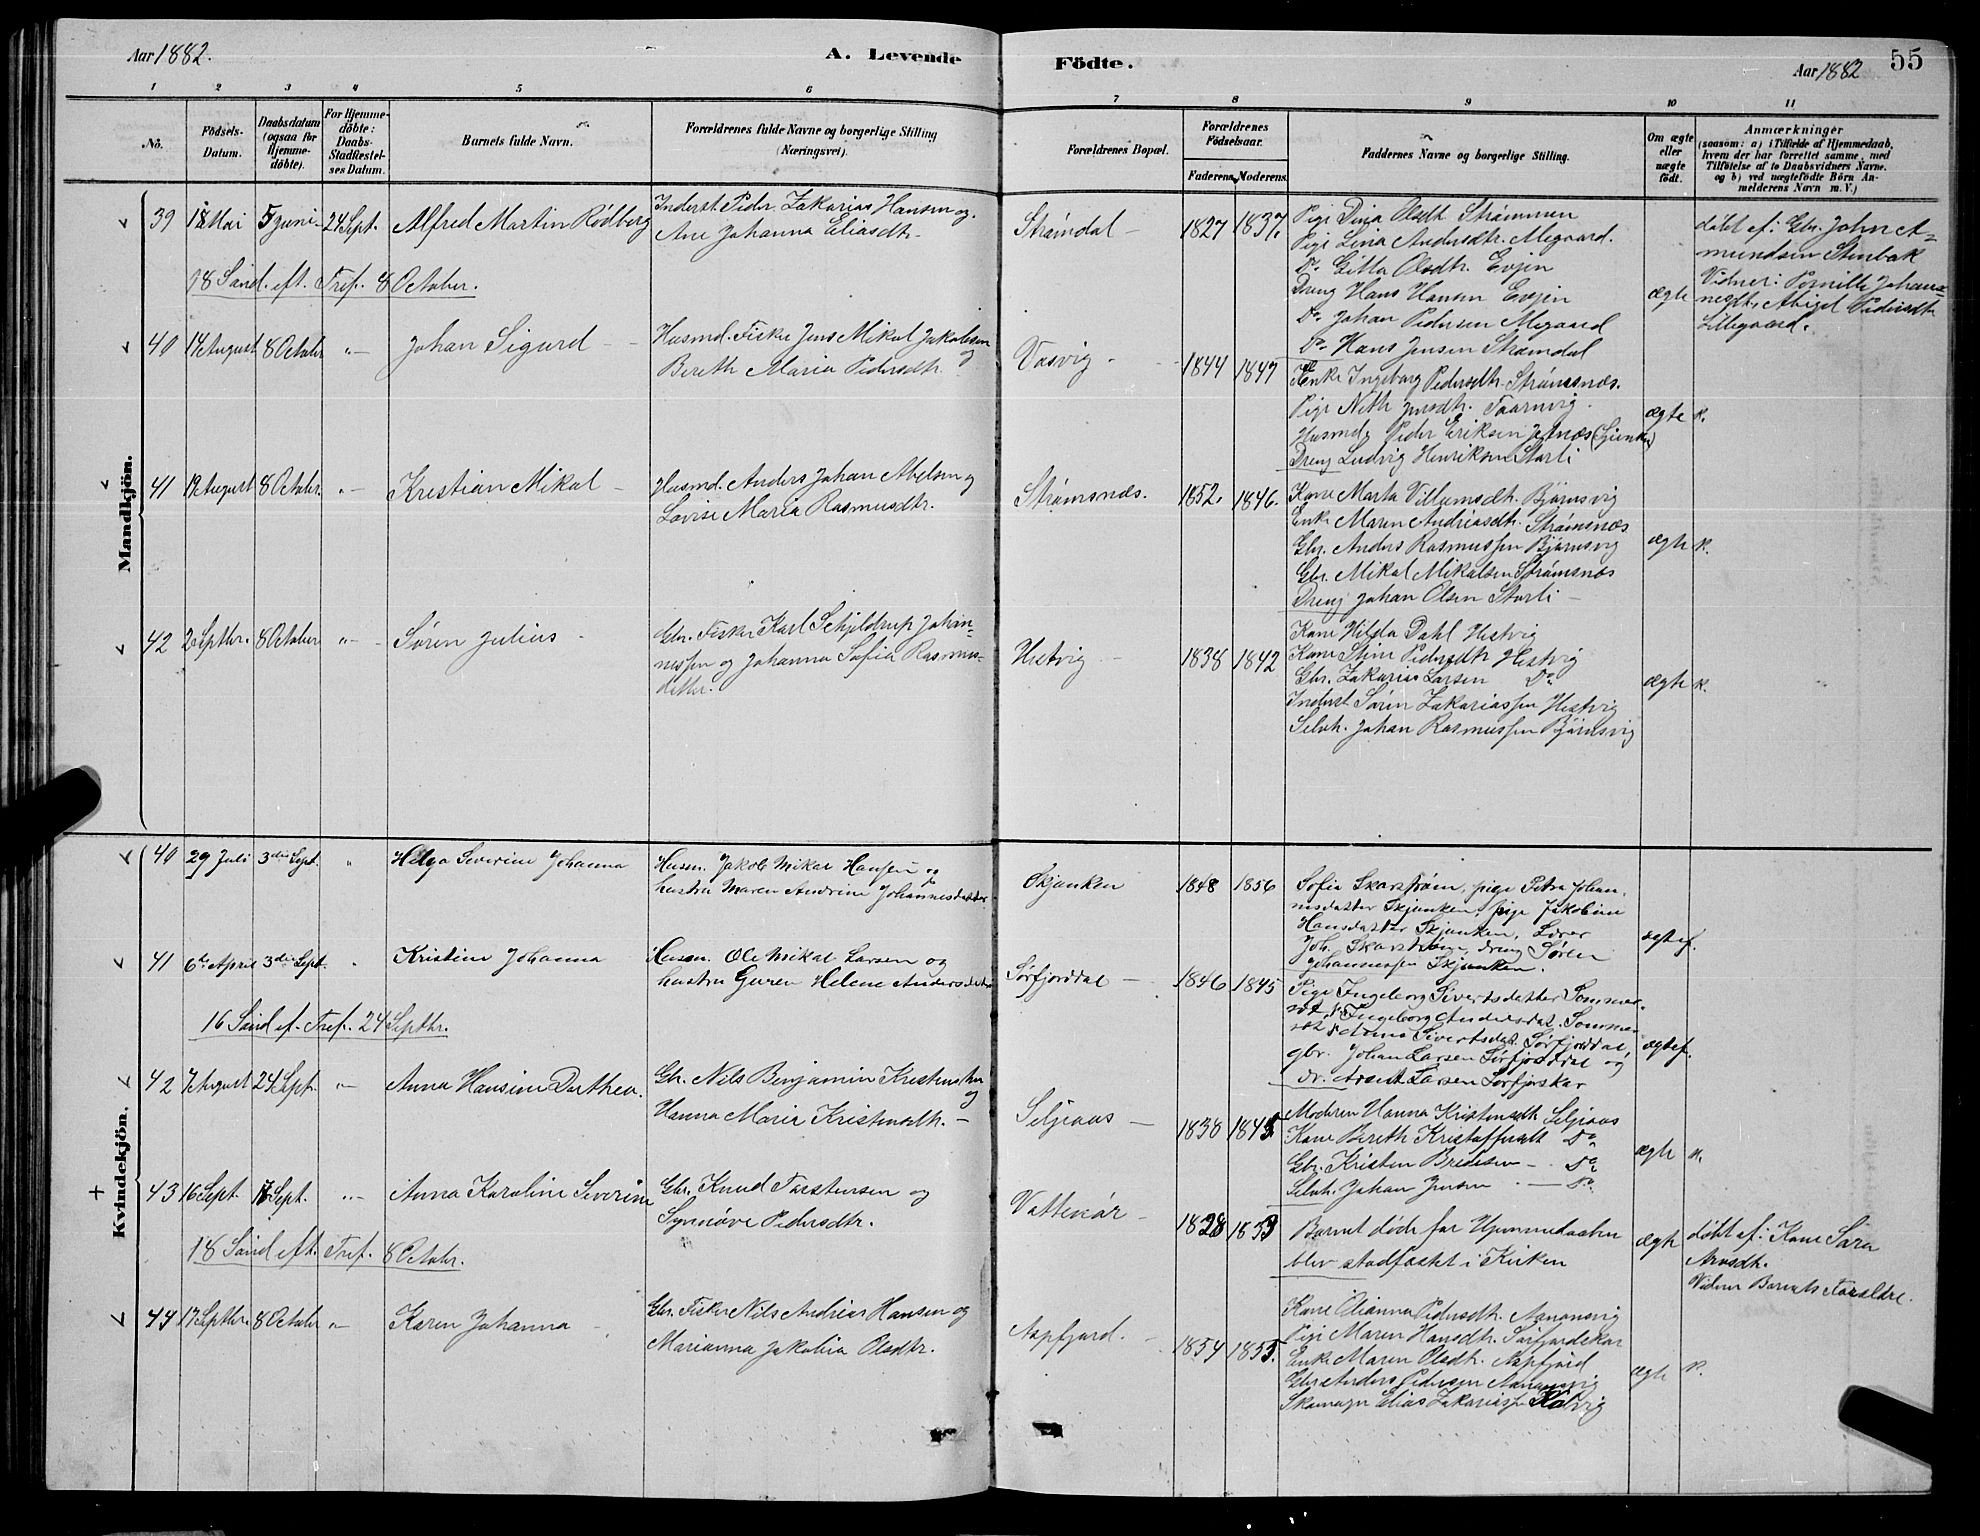 Aar 1882.
A. Levende
Födte.
Aar 1882
55
1 2 3 4 5 6 7 8 9 10 11
No.
Födsels-
Datum.
Daabsdatum
(ogsaa for
Hjemme-
döbte).
For Hjemme-
döbte:
Daabs-
Stadfæstel-
ses Datum.
Barnets fulde Navn.
Forældrenes fulde Navne og borgerlige Stilling
(Næringsvei).
Forældrenes Bopæl.
Forældrenes
Födselsaar.
Faderens.
Moderens.
Faddernes Navne og borgerlige Stilling.
Om ægte
eller
uægte
födt.
Anmærkninger
(saasom: a) i Tilfælde af Hjemmedaab,
hvem der har forrettet samme, med
Tilföielse af to Daabsvidners Navne.
og b) ved uægtefödte Börn An-
melderens Navn m. V.)
Mandkjön.
39
18 Mai
5 juni
24 Sept.
Alfred Martin Rödberg
Inderst Peder Zakarias Hansen og
Ane Johanna Eliasdtr.
Strømdal
1827
1837.
Pige Dina Olsdt Strømmen
Pige Lina Andersdtr. Megaard.
Do. Gitta Olsdtr. Evjen
Dreng Hans Hansen Evjen
Do. Johan Pedersen Megaard
Do. Hans Jensen Strømdal
ægte
döbt af: Gbr. John A=
mundsen Stenbak
Vidner: Pernille Johan=
nesdt., Abigel Pedersdt.
Lillegaard.
18 Sønd. eft. Tref. 8 October.
40
14 August
8 October
"
Johan Sigurd
Husmd. Fisker Jens Mikal Jakobsen
og
Bereth Maria Pedersdtr.
Vasvig
1844
1847
Enke Ingeborg Pedersdtr. Strømsnæs.
Pige Neth Jensdtr. Taarnvig.
Husmd. Peder Eriksen Jetnæs
Dreng Ludvig Henriksen Storli
ægte
K.
41
19 August
8 October.
"
Kristian Mikal
Husmd. Anders Johan Abelsen og
Lovise Maria Rasmusdtr.
Strømsnæs.
1852.
1846.
Kone Marta Villumsdtr. Bjørnsvig
Enke Maren Andreasdtr. Strømsnæs
Gbr. Anders Rasmussen Bjørnsvig
Gbr. Mikal Mikalsen Strømsnæs
Dreng Johan Olsen Storli
ægte
K.
42
2 Septbr.
8 October
"
Søren Julius
Gbr. Fisker Karl Schjeldrup Johan=
nessen og Johanna Sofia Rasmus=
datter.
Hestvig
1838
1842
Kone Hilda Dahl Hestvig
Kone Stine Pedersdtr Hestvig
Gbr. Zakarias Larsen Do
Inderst Søren Zakariassen Hestvig
Selvh. Johan Rasmussen Bjørnsvig
ægte
K.
Kvindekjön.
40
29 Juli
3die Sept.
"
Helga Severine Johanna
Husm. Jakob Mikal Hansen og
hustru Maren Andrine Johannesdatter
Skjønken
1848
1856
Sofia Skarstrøm, pige Petra Johan-
nesdatter Skjunken, pige Jakobine
Hansdatter Skjunken, Lærer
Joh. Skarstrøm, dreng Søren
Johannessen Skjunken.
ægtef.
41
6te April
3die Sept.
"
Kristine Johanna
Husm. Ole Mikal Larsen og
hustru Guren Helene Andersdatter
Sørfjorddal
1846
1845
Pige Ingeborg Sivertsdatter Sommer-
set, Ingeborg Andersdat. Sommer-
set, Anne Sivertsdat. Sørfjorddal,
gbr. Johan Larsen Sørfjorddal og
dr. Arent Larsen Sørfjorskar
ægtef.
16 Sønd ef. Tref. 24 Septbr.
42
7 August
24 Sept.
"
Anna Hansine Dorthea.
Gbr. Nils Benjamin Kristensen
og
Hanna Maria Kristensdtr.
Seljeaas
1838
1845
Moderen Hanna Kristensdtr Seljeaas
Kone Bereth Kristoffersdt Do
Gbr. Kristen Bredesen Do
Selvh. Johan Jensen Do
ægte
K.
43
16 Sept.
17 Sept.
"
Anna Karoline Severine
Gbr. Knud Torstensen og
Synnøve Pedersdtr.
Vattenvår
1828
1853
Barnet døde før Hjemmedaaben
blev stadfæstet i Kirken
ægte
döbt af: Kone Sara
Arnsdtr.
Vidner Barnets Forældre.
18 Sønd eft. Tref. 8 October.
44
17 Septbr.
8 October
"
Karen Johanna
Gbr. Fisker Nils Andreas Hansen og
Marianna Jakobia Olsdtr.
Aspfjord.
1854
1855.
Kone Elianna Pedersdtr. Aanansvig
Pige Maren Hansdtr. Sørfjordskar
Enke Maren Olsdtr. Aspfjord
Gbr. Anders Pedersen Aanansvig
Elias Zakariass.
ægte
K.